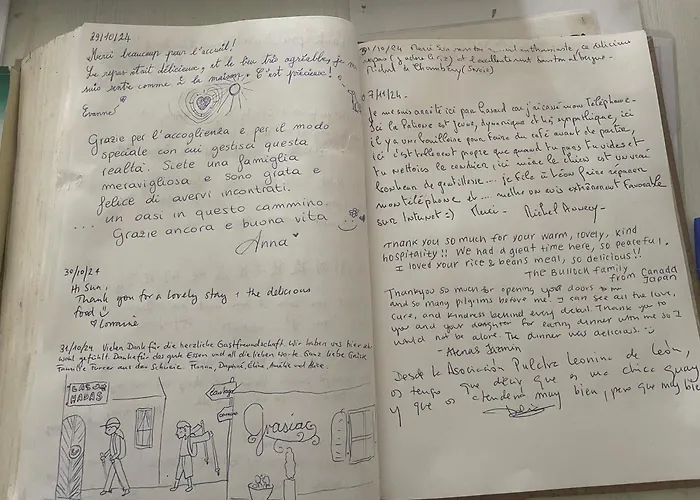 29/10/24
Merci beaucoup pour l'accueil!
Le repas était délicieux, et le lieu très agréable, je me
suis sentie comme à la maison. C'est précieux!
Evanne
Grazie per l'accoglienza e per il modo
speciale con cui gestisci questa
realtà. Siete una famiglia
meravigliosa e sono grata e
felice di avervi incontrati.
... un oasi in questo cammino.
Grazie ancora e buona vita
Anna
30/10/24
Hi Sua,
Thank you for a lovely stay + the delicious
food
Lorraine
31/10/24 Vielen Dank für die herzliche Gastfreundschaft. Wir haben uns hier
wohl gefühlt. Danke für das gute Essen und all die lieben Worte. Ganz liebe Grüsse
Familie Furrer aus der Schweiz.
LABOR
MADAS
Santiago
camino
Gracias
31/10/24 Merci
repas et l'excellent
de Chambéry (Savoie)
07/11/24.
Je me suis arrêté ici par hasard car j'ai cassé mon téléphone.
Ici la Patronne est jeune, dynamique et très sympathique, ici
il y a une bouilloire pour faire du café avant de partir,
ici c'est tellement propre que quand tu pars tu vides et
tu nettoies le cendrier, ici même le chien est un vrai
bonbeau de gentillesse... je file à Léon faire réparer
mon téléphone et mettre un avis extrêmement favorable
sur Internet :) Merci - Michel Annecy -
Thank you so much for your warm, lovely, kind
hospitality!! We had a great time here, so peaceful.
I loved your rice & beans meal, so delicious!!
The Bulloch family
from Canada
Japan
Thankyou so much for opening your doors to me
and so many pilgrims before me! I can see all the love,
care, and kindness behind every detail. Thank you to
you and your daughter for eating dinner with me so I
would not be alone. The dinner was delicious.
Jazmin
Desde la Asociación Pulchra Leonina de León,
os tengo que decir que es una chica guay
y que os atenderá muy bien, pero que muy bien